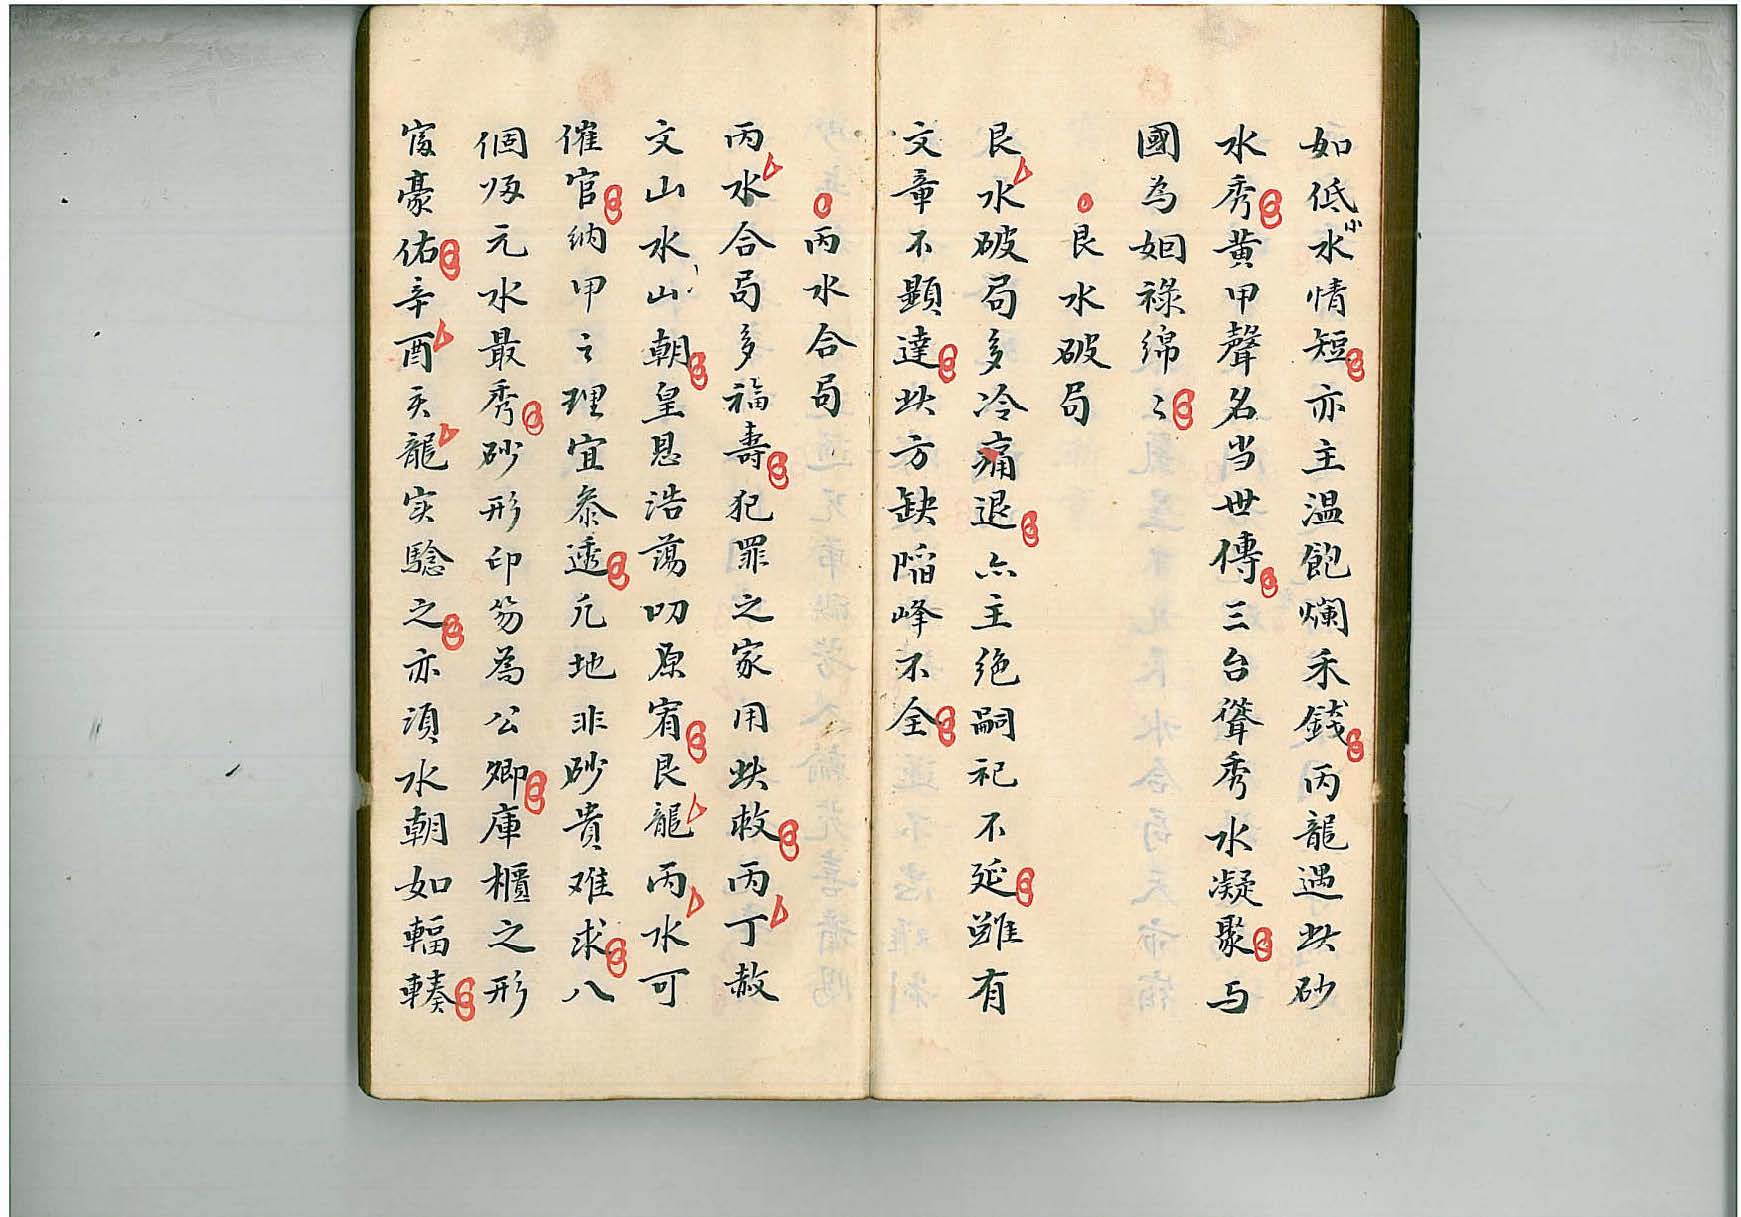 如低小水情短亦主温飽爛禾錢丙龍遇此砂
水秀黄甲聲名当世傳三台聳秀水凝聚与
國為姻祿綿〻
艮水破局
艮水破局多冷痛退亦主绝嗣祀不延雖有
文章不顕達此方缺陷峰不全
丙水合局
丙水合局多福壽犯罪之家用此救丙丁赦
文山水山朝皇恩浩蕩叨原宥艮龍丙水可
催官納甲之理宜叅透凢地非砂貴难求八
個归元水最秀砂形印笏為公卿庫櫃之形
富豪佑辛酉亥龍实驗之亦須水朝如輻輳